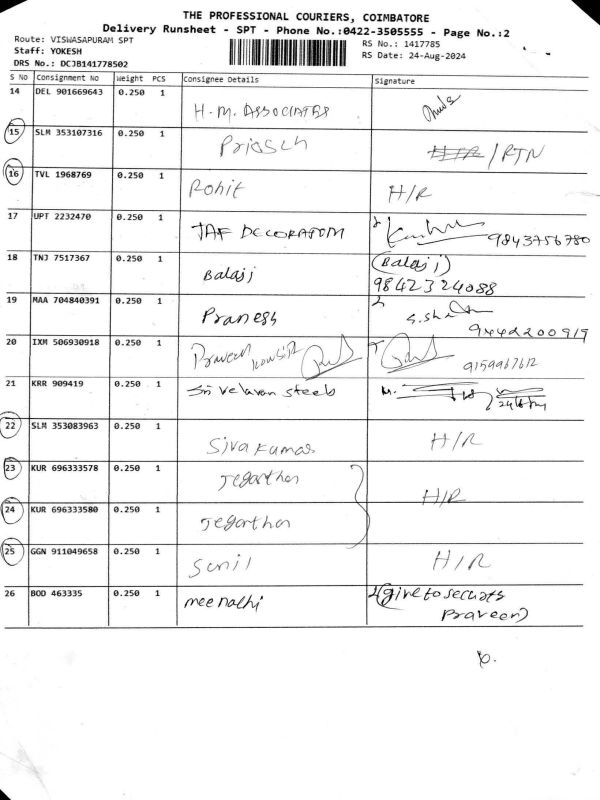 THE PROFESSIONAL COURIERS, COIMBATORE
Delivery Runsheet - SPT - Phone No.:0422-3505555 - Page No.:2
Route: VISWASAPURAM SPT
RS No.: 1417785
Staff: YOKESH
RS Date: 24-Aug-2024
DRS No.: DCJB141778502
S No Consignment No Weight PCS Consignee Details Signature
14 DEL 901669643 0.250 1 H.M. ASSOCIATES
15 SLM 353107316 0.250 1 / RTN
16 TVL 1968769 0.250 1 Rohit H/R
17 UPT 2232470 0.250 1 JAF DECORATOM 9843756780
18 TNJ 7517367 0.250 1 Balaji (Balaji)
9842324088
19 MAA 704840391 0.250 1 Pranesh
9442200919
20 IXM 506930918 0.250 1 Praveen 9159967612
21 KRR 909419 0.250 1 Sri velavan steels M.
22 SLM 353083963 0.250 1 Siva kumar H/R
23 KUR 696333578 0.250 1 Jegathan
H/R
24 KUR 696333580 0.250 1 Jegathan
25 GGN 911049658 0.250 1 Sunil H/R
26 BOD 463335 0.250 1 (give to
Praveen)